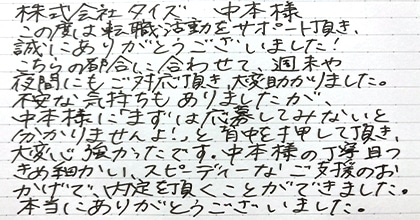 株式会社タイズ 中本様
この度は転職活動をサポート頂き、
誠にありがとうございました!
こちらの都合に合わせて、週末や
夜間にもご対応頂き、大変助かりました。
不安な気持ちもありましたが、
中本様に「まずは応募してみないと
分かりませんよ!」と背中を押して頂き、
大変心強かったです。中本様の丁寧且つ
きめ細かい、スピーディーなご支援のお
かげで、内定を頂くことができました。
本当にありがとうございました。